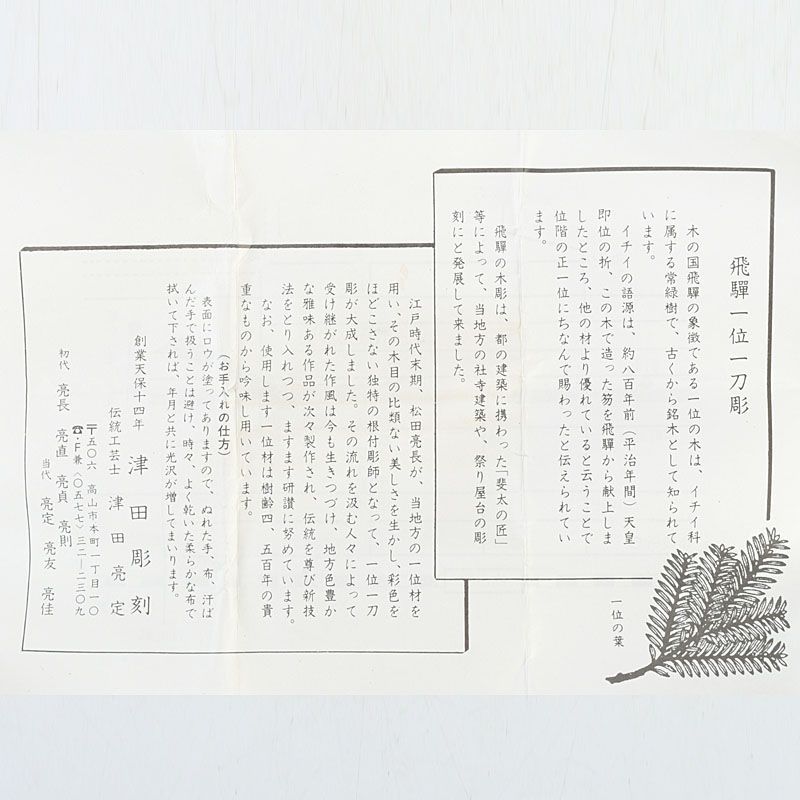 飛騨一位一刀彫
木の国飛騨の象徴である一位の木は、イチイ科
に属する常緑樹で、古くから銘木として知られて
います。
イチイの語源は、約八百年前（平治年間）天皇
即位の折、この木で造った笏を飛騨から献上しま
したところ、他の材より優れていると云うことで
位階の正一位にちなんで賜わったと伝えられてい
ます。
飛騨の木彫は、都の建築に携わった「斐太の匠」
等によって、当地方の社寺建築や、祭り屋台の彫
刻にと発展して来ました。
一位の葉
江戸時代末期、松田亮長が、当地方の一位材を
用い、その木目の比類ない美しさを生かし、彩色を
ほどこさない独特の根付彫師となって、一位一刀
彫が大成しました。その流れを汲む人々によって
受け継がれた作風は今も生きつづけ、地方色豊か
な雅味ある作品が次々製作され、伝統を尊び新技
法をとり入れつつ、ますます研讃に努めています。
なお、使用します一位材は樹齢四、五百年の貴
重なものから吟味し用いています。
（お手入れの仕方）
表面にロウが塗ってありますので、ぬれた手、布、汗ば
んだ手で扱うことは避け、時々、よく乾いた柔らかな布で
拭いて下されば、年月と共に光沢が増してまいります。
創業天保十四年 津田彫刻
伝統工芸士 津田亮定
〒五〇六 高山市本町一丁目一〇
☎・F兼（〇五七七）三二―二三〇九
初代 亮長 亮直 亮貞 亮則
当代 亮定 亮友 亮佳